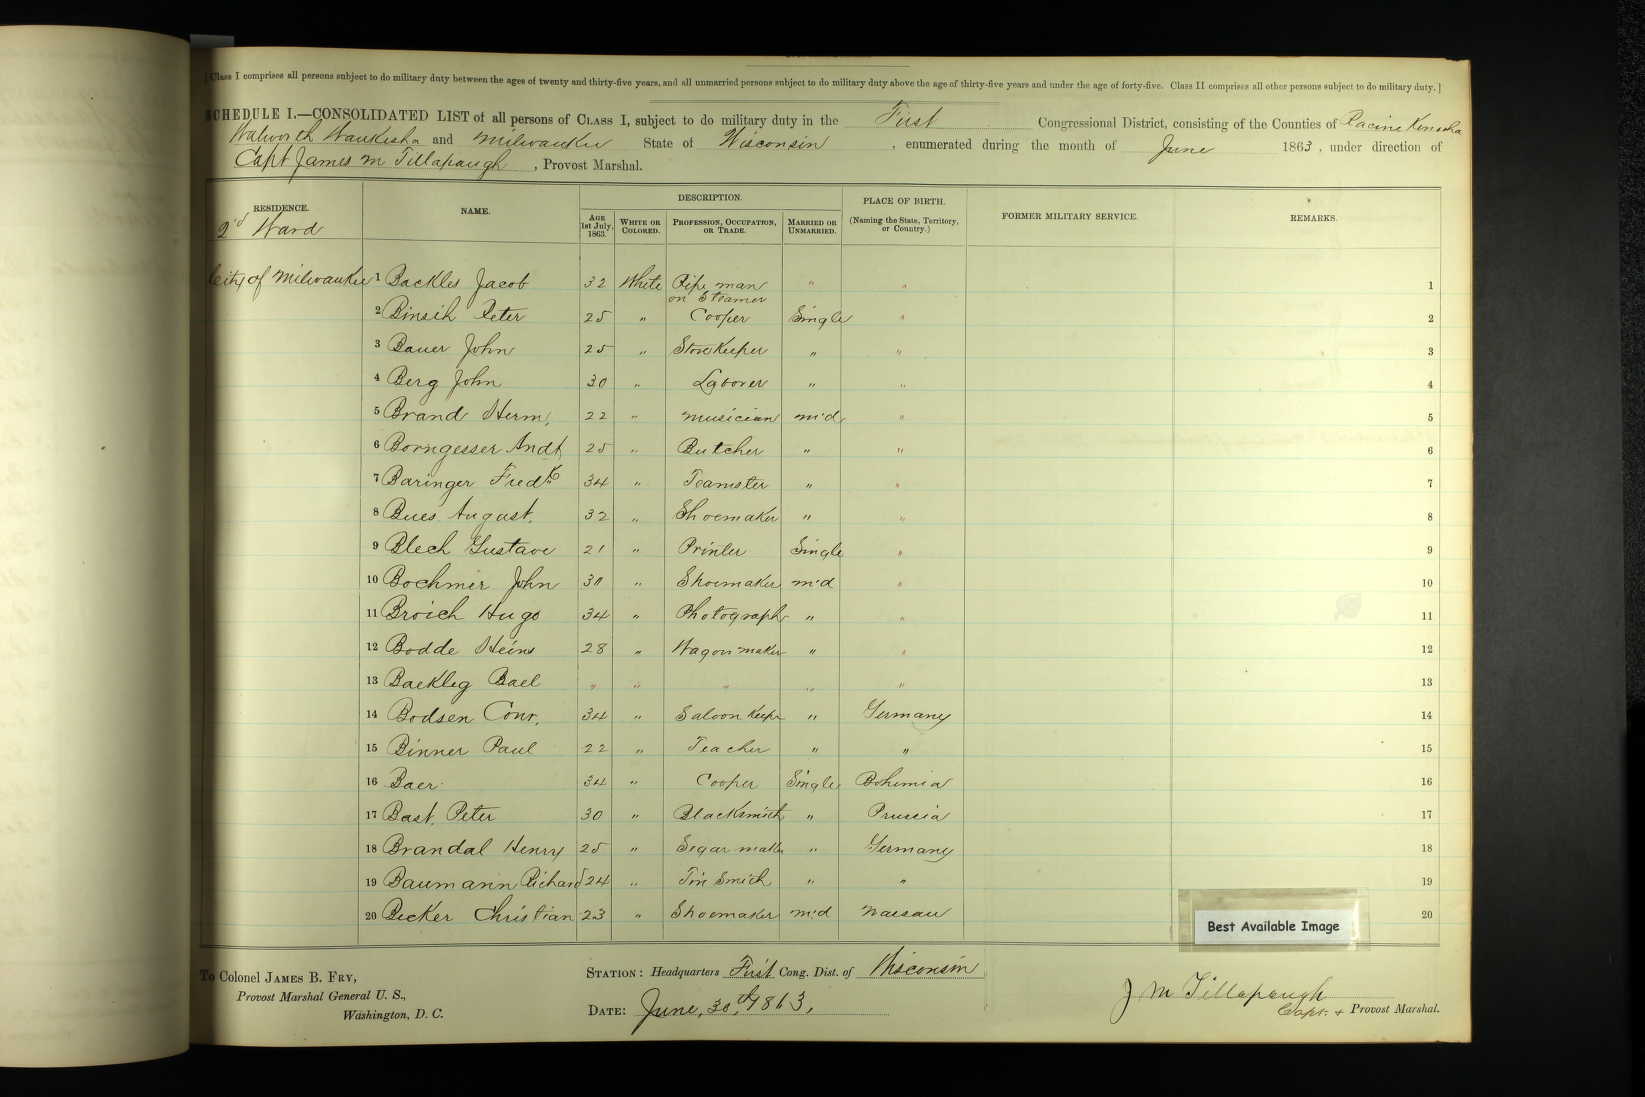 [ Class I comprises all persons subject to do military duty between the ages of twenty and thirty-five years, and all unmarried persons subject to do military duty above the age of thirty-five years and under the age of forty-five. Class II comprises all other persons subject to do military duty. ]
SCHEDULE I.—CONSOLIDATED LIST of all persons of CLASS I, subject to do military duty in the First Congressional District, consisting of the Counties of Racine Kenosha
Walworth Waukesha and Milwaukee State of Wisconsin, enumerated during the month of June 1863, under direction of
Capt James M Tillapaugh, Provost Marshal.
RESIDENCE. NAME. DESCRIPTION. PLACE OF BIRTH. FORMER MILITARY SERVICE. REMARKS.
AGE 1st July, 1863. WHITE OR COLORED. PROFESSION, OCCUPATION, OR TRADE. MARRIED OR UNMARRIED. (Naming the State, Territory, or Country.)
2'd Ward
City of Milwaukee 1 Backles Jacob 32 White Pipe man " " 1
on Steamer
2 Binsih Peter 25 " Cooper Single " 2
3 Bauer John 25 " Storekeeper " " 3
4 Berg John 30 " Laborer " " 4
5 Brand Herm, 22 " Musician m'd " 5
6 Borngesser Andt 25 " Butcher " " 6
7 Baringer Fredk 34 " Teamster " " 7
8 Bues August. 32 " Shoemaker " " 8
9 Blech Gustave 21 " Printer Single " 9
10 Bochmer John 30 " Shoemaker m'd " 10
11 Broich Hugo 34 " Photograph " " 11
12 Bodde Heins 28 " Wagon maker " " 12
13 Backleg Bael " " " " " 13
14 Bodsen Conr. 34 " Saloon Keeper " Germany 14
15 Binner Paul 22 " Teacher " " 15
16 Baer 34 " Cooper Single Bohemia 16
17 Bast, Peter 30 " Blacksmith " Prussia 17
18 Brandal Henry 25 " Segar maker " Germany 18
19 Baumann Richard 24 " Tin Smith " " 19
20 Becker Christian 23 " Shoemaker m'd Nassau 20
Best Available Image
To Colonel JAMES B. FRY,
Provost Marshal General U. S.,
Washington, D. C.
STATION: Headquarters First Cong. Dist. of Wisconsin
DATE: June, 30th, 1863,
J M Tillapaugh
Capt. + Provost Marshal.